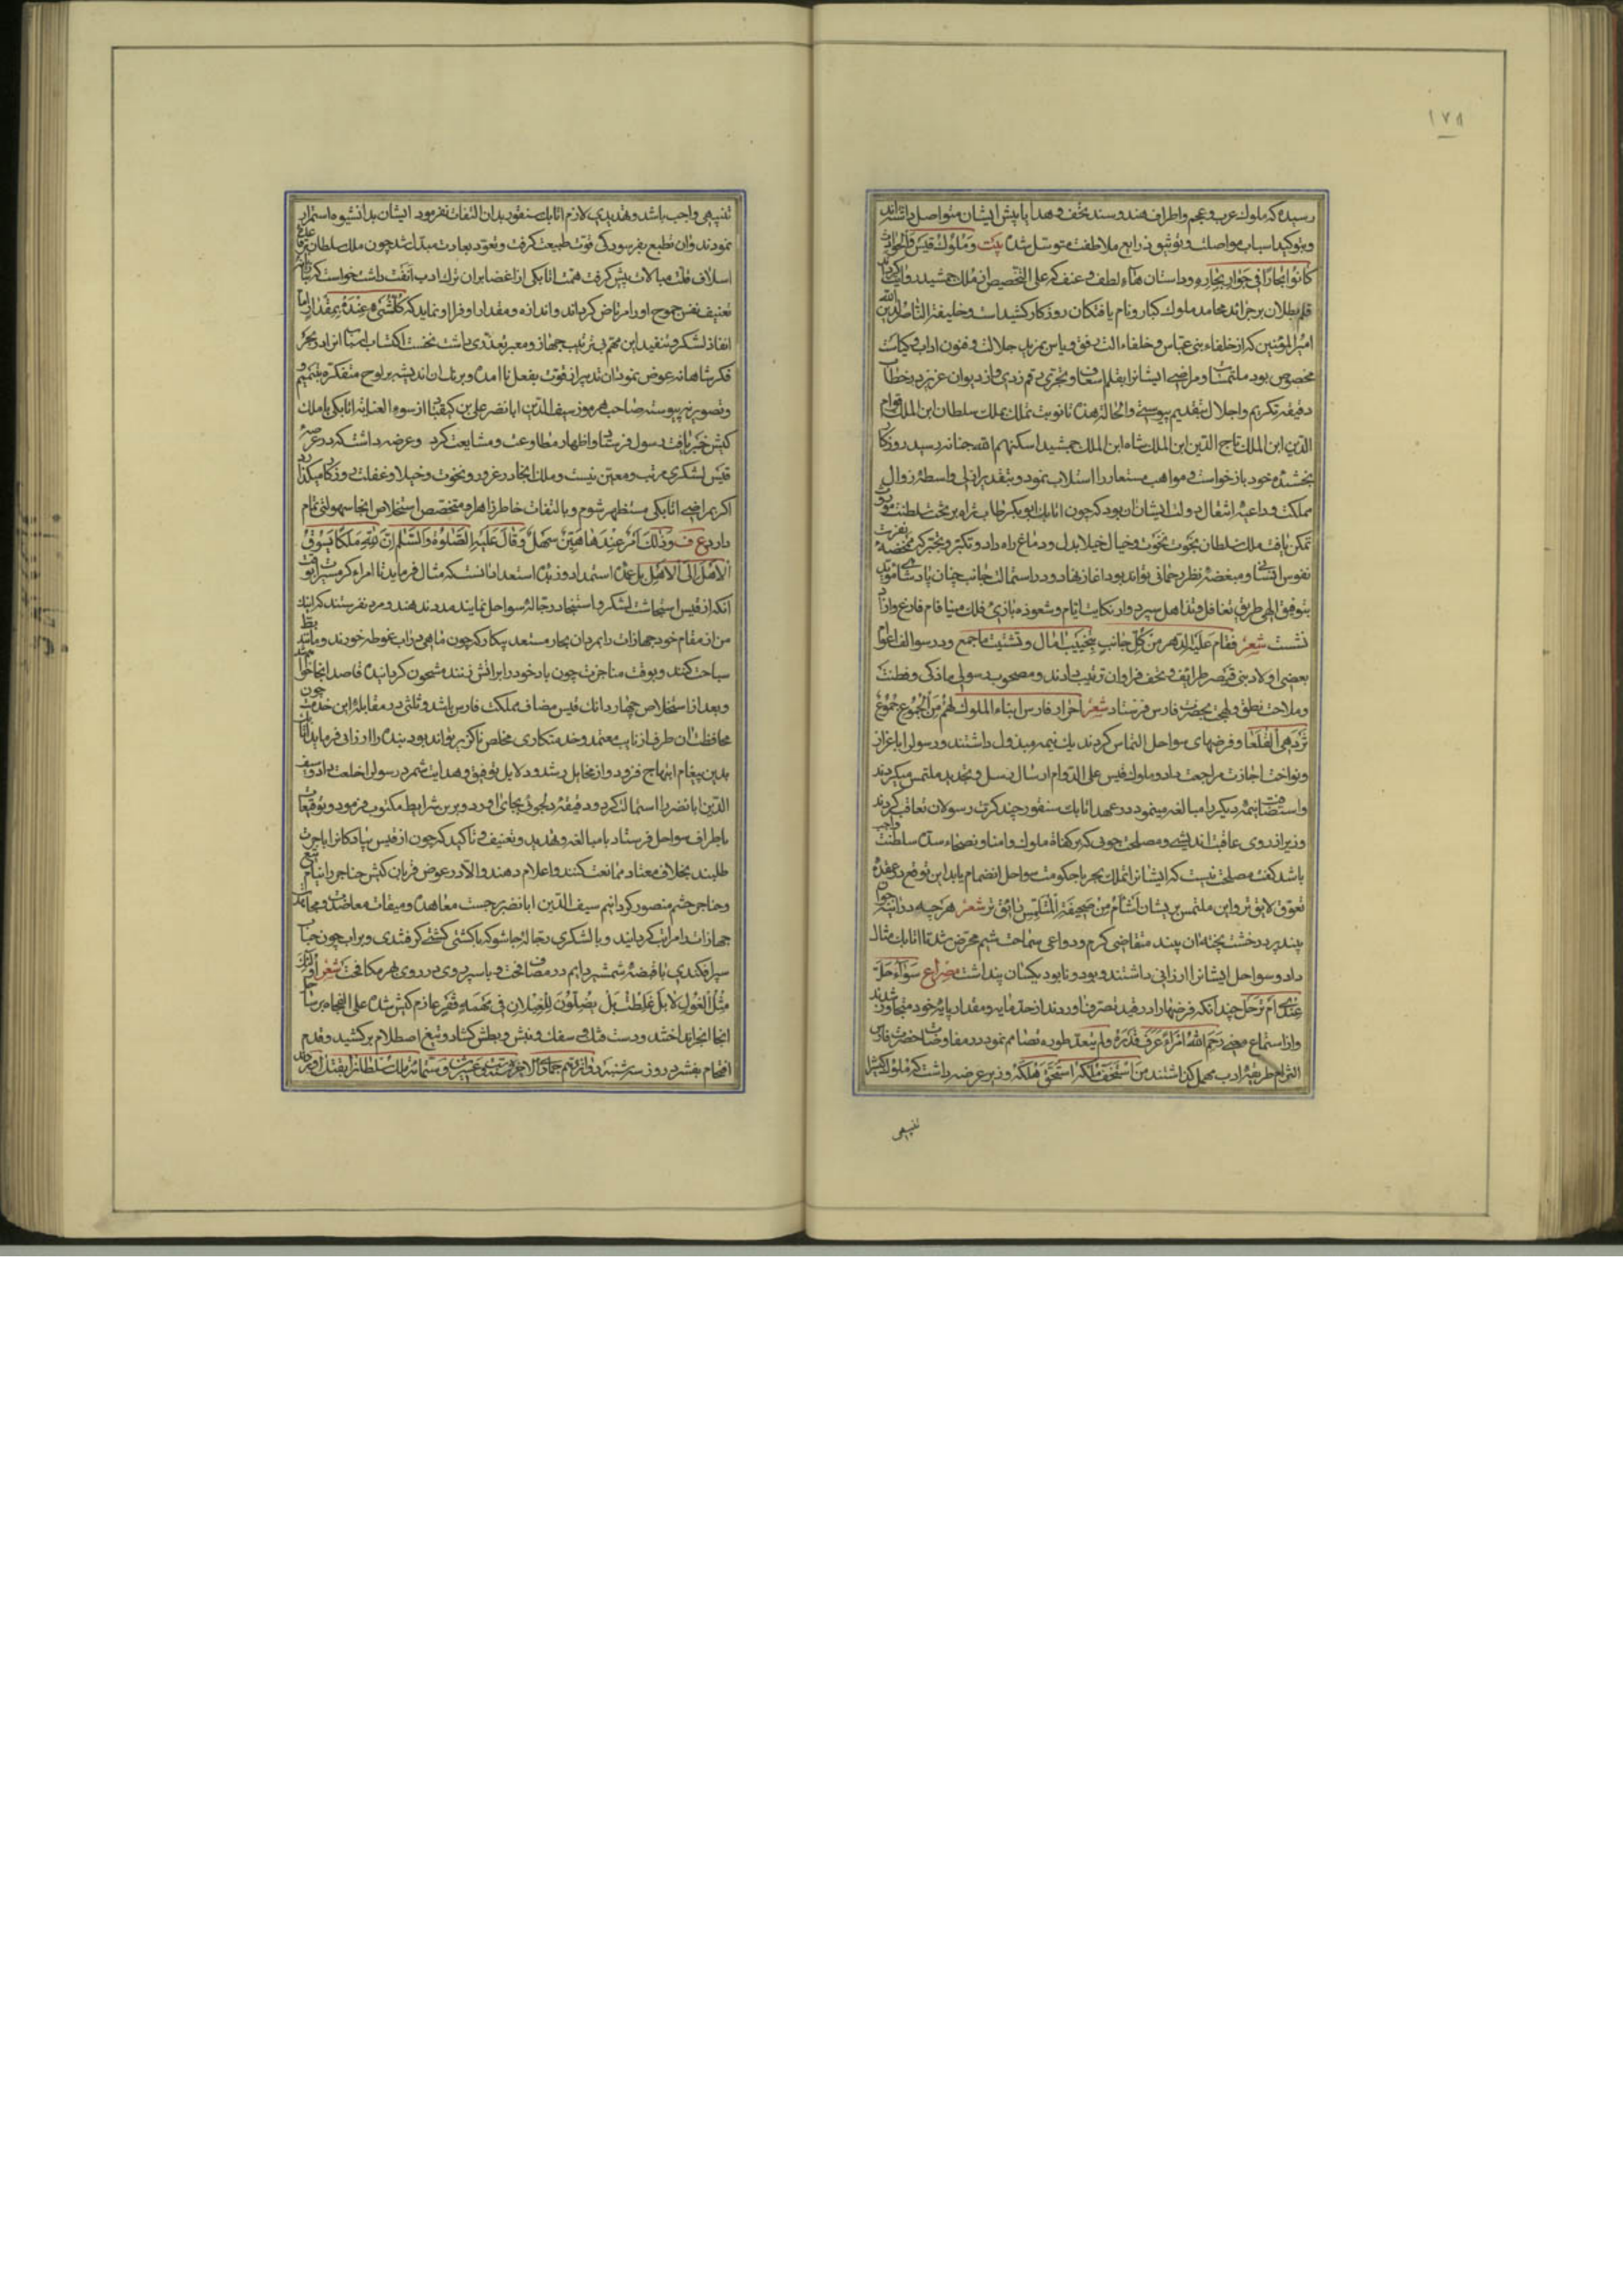 ١٧٨
رسیده که ملوک عرب و عجم و اطراف هند و سند تحف و هدایا پیش ایشان متواصل داشته‌اند
و بتوکید اسباب مواصلت و توشیق ذرایع ملاطفت متوسل شده بیت و ملوک قیس فالحوادث
کانوا بحارا فی جوار بحاره و داستان هناء لطف و عنف که علی التخصیص از ملک جمشید روایت کرده‌اند
قلم بطلان بر جرائد محامد ملوک کبار و نام یافتکان روزکار کشیده است و خلیفه الناصر لدین الله
امیر المؤمنین که از خلفاء بنی عباس و خلفاء الت دفق و یاس بمزید جلالت و فنون اداب و کیاست
مخصوص بود ملتمسات و مراضی ایشانرا بقلم اسعاف و تحری رقم زدی و از دیوان عزیز در خطاب
دقیقه تکریم و اجلال بتقدیم پیوستی والحالة هذه تا نوبت تملک بملک سلطان ابن الملک قوام
الدین ابن الملک تاج الدین ابن الملک شاه ابن الملک جمشید اسکنهم الله جنانه رسید روزکار
بخشنده خود باز خواست و مواهب مستعار را استلاب نمود و بتقدیر ازلی واسطه زوال
مملکت و داعیه انتقال دولت ایشان آن بود که چون اتابک ابوبکر طاب ثراه بر تخت سلطنت موروث
تمکن یافت ملک سلطان بخوت نخوت و خیال خیلا بدل و دماغ راه داد و تکبر و تجبر که مخضمه نفرت
نفوس انسانی و مبغضه نظر رحمانی تواند بود اغاز نهاد و در استمالت جانب چنان پادشاهی موید
بتوفیق الهی طریق تغافل و تذاهل سپرد و از نکایت ایام و شعوذه بازی فلک مینا فام فارغ و ازاد
نشست شعر فقام علیه الدهر من کل جانب بتخییب امال و تشتیت ما جمع و در سوالف اعوام
بعضی اولاد بنی قیصر طرایف و تحف فراوان ترتیب دادند و مصحوب رسولی ماذکی و فطنت
و ملاحت نطق و لهجت بحضرت فارس فرستاد شعر احرار فارس ابناء الملوک لهم من الجموع جموع
تزدهی القلعا و فرضهای سواحل التماس کردند یک نیمه مبذول داشتند و رسول را باعزاز
و نواخت اجازت مراجعت داد و ملوک قیس علی الدوام ارسال رسل و تجدید ملتمس میکردند
و استضافت نیمه دیکر را مبالغه مینمود در عهد اتابک سنقور چند کرت رسولان تعاقب کردند
وزیر از روی عاقبت اندیشی و مصلحت جویی که بر کفاة ملوک و امنا و نصحاء سده سلطنت واجب
باشد کفت مصلحت نیست که ایشانرا تملک بحر با حکومت سواحل انضمام یابد این توقع در عقده
تعوق لایق‌تر و این ملتمس بریشان اشأم من صحیفة المتلمس فایق‌تر شعر هرچه در آینه جوان
بیند پیر در خشت پخته آن بیند متقاضی کرم و دواعی سماحت شیم محرض شد تا اتابک مثال
داد و سواحل ایشانرا ارزانی داشتند و بود و نابود یکسان پنداشت مصراع سواء حل
عندی ام ترحل چندانکه فرضها را در قید تصرف اوردند از حد مایه و مقدار پایه خود متجاوز شدند
و از استماع معنی رحم الله امرأ عرف قدره و لم یتعد طوره تصامم نمود در مفاوضات حضرت فارس
التزام طریقه ادب مهمل کذاشتند من استخف ملکه استحق هلکه وزیر عرضه داشت که ملوک کیش را
تنبیهی
تنبیهی واجب باشد و تهدیدی لازم اتابک سنقور بدان التفات نفرمود ایشان بدان شیوه استمرار
نمودند و ان تطبع بفرسودکی قوت طبیعت کرفت و تعود بعادت مبدل شد چون ملک سلطان
اسلاف قلت مبالات پیش کرفت همت اتابکی از اغضا بران ترک ادب انفت داشت خواست که
تعنیف نفس جموح او را مرتاض کرداند و اندازه و مقدار او فرا او نماید که کل شیء عنده بمقدار اما
انفاذ لشکر و تنفیذ این مهم بی ترتیب جهاز و معبر تعذری داشت نخست اکتساب اسباب
فکر شاهانه عوض نمود آن تدبیر از قوت بفعل نا امده و برنک ان اندیشه بر لوح متفکره بتمیم
و تصویر نه پیوسته صاحب هرموز سیف الدین ابانضر علی بن کیقباد از سوء العنایه اتابکی با ملک
کیش خبر یافت رسول فرستاد و اظهار مطاوعت و مشایعت کرد و عرضه داشت که در عرصه
قیس لشکری مرتب و معین نیست و ملک انجا در غرور و نخوت و خیلا و غفلت روزکار میکذارد
اکر بمراضی اتابکی مستظهر شوم و بالتفات خاطر زاهر او متخصص استخلاص انجا سهولتی تمام
دارد ع ف و ذلک امر عندها هین سهل و قال علیه الصلوة والسلم ان لله ملکا یسوق
الاهل الی الاهل بل عده استمداد و زبده استعداد انستکه مثال فرماید تا امراء کرمسیرات
انکه از قیس استجاشت لشکر و استنجاد رجاله سواحل نمایند مدد ندهند و مرد نفرستند که اینک
من از مقام خود جهازات را بمردان بحار مستعد پیکار که چون ماهی در اب غوطه خورند و مانند بط
سباحت کنند و بوقت مناجزت چون باد خود را بر اتش زنند مشحون کردانیده قاصد انجا خواهم شد
و بعد از استخلاص چهار دانک قیس مضاف مملکت فارس باشد و ثلثی در مقابله این خدمت چون
محافظت ان طرف از نایب معتمد و خدمتکاری مخلص ناکزیر تواند بود بنده را ارزانی فرماید اتابک
بدین پیغام ابتهاج فزود و از مخایل رشد و دلایل توفیق و هدایت شمرد رسول را خلعت داد و سیف
الدین ابانضر را استمالت کرد و دقیقه دلجوئی بجای اورد و برین شرایط مکتوب فرمود و توقیعات
باطراف سواحل فرستاد با مبالغه و تهدید و تعنیف و تاکید که چون از قیس سپاه کانرا باجرت
طلبند بخلاف معتاد ممانعت کنند و اعلام دهند والا در عوض قربان کیش حناجر را نیام تیغ
و حناجر حشم منصور کردانیم سیف الدین ابانضر بر حسب معاهده و میقات معاضدت
جهازات را مراتب کردانید و با لشکری رجاله جاشو که با کشتی کشتی کرفتندی و بر اب چون حباب
سپر افکندی با قبضه شمشیر دایم در مصافحت و با سپر روی در روی هم مکافحت شعر
مثل الغول لا بل غلطت بل یضلون للغیلان فی مهمه قفر عازم کیش شده علی الفجاه بر ساحل
انجا انجر انداختند و دست فتک و سفک و نهش و بطش کشاد و تیغ اصطلام بر کشید و قدم
اقتحام بفشرد روز سه شنبه دوازدهم جمادی الاخر سنة ست و عشرین و ستمائه ملک سلطانرا بقتل اورد